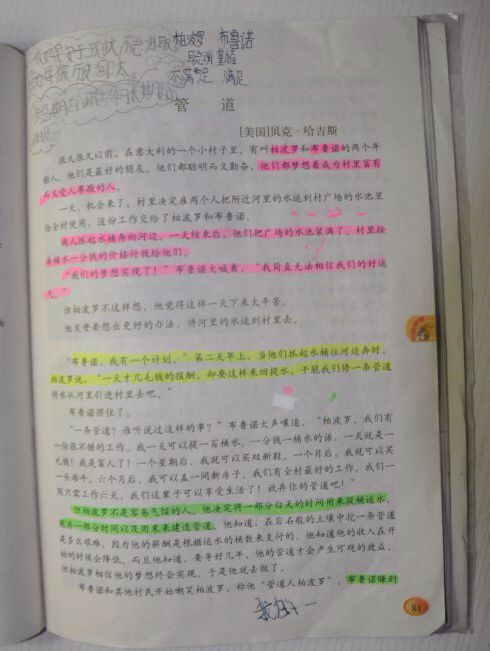 柏波罗 布鲁诺
聪明 勤奋
不满足 满足
管 道
[美国]贝克·哈吉斯
很久很久以前，在意大利的一个小村子里，有叫柏波罗和布鲁诺的两个年
轻人，他们是最好的朋友，他们都聪明而又勤奋，他们都梦想着成为村里富有
而又受人尊敬的人。
一天，机会来了，村里决定雇两个人把附近河里的水运到村广场的水池里
给全村使用，这份工作交给了柏波罗和布鲁诺。
两人抓起水桶奔向河边，一天结束后，他们把广场的水池装满了，村里按
每桶水一分钱的价格付钱给他们。
“我们的梦想实现了！”布鲁诺大喊着，“我简直无法相信我们的好运
气。”
但柏波罗不这样想，他觉得这样一天下来太辛苦。
他发誓要想出更好的办法，将河里的水运到村里去。
“布鲁诺，我有一个计划。”第二天早上，当他们抓起水桶往河边奔时，
柏波罗说，“一天才几毛钱的报酬，却要这样来回提水，干脆我们修一条管道
将水从河里引进村里去吧。”
布鲁诺愣住了。
“一条管道？谁听说过这样的事？”布鲁诺大声嚷道，“柏波罗，我们有
一份很不错的工作。我一天可以提一百桶水，一分钱一桶水的话，一天就是一
元钱！我是富人了！一个星期后，我就可以买双新鞋，一个月后，我就可以买
一头母牛，六个月后，我可以盖一间新房子。我们有全村最好的工作。我们一
周只需工作六天，我们这辈子可以享受生活了！放弃你的管道吧！”
但柏波罗不是容易气馁的人，他决定将一部分白天的时间用来提桶运水，
用另一部分时间以及周末来建造管道。他知道，在岩石般的土壤中挖一条管道
是多么艰难。因为他的薪酬是根据运水的桶数来支付的，他知道他的收入在开
始的时候会降低。而且他知道，要等好几年，他的管道才会产生可观的效益。
但柏波罗相信他的梦想终会实现，于是他就去做了。
布鲁诺和其他村民开始嘲笑柏波罗，称他“管道人柏波罗”，布鲁诺赚到
81